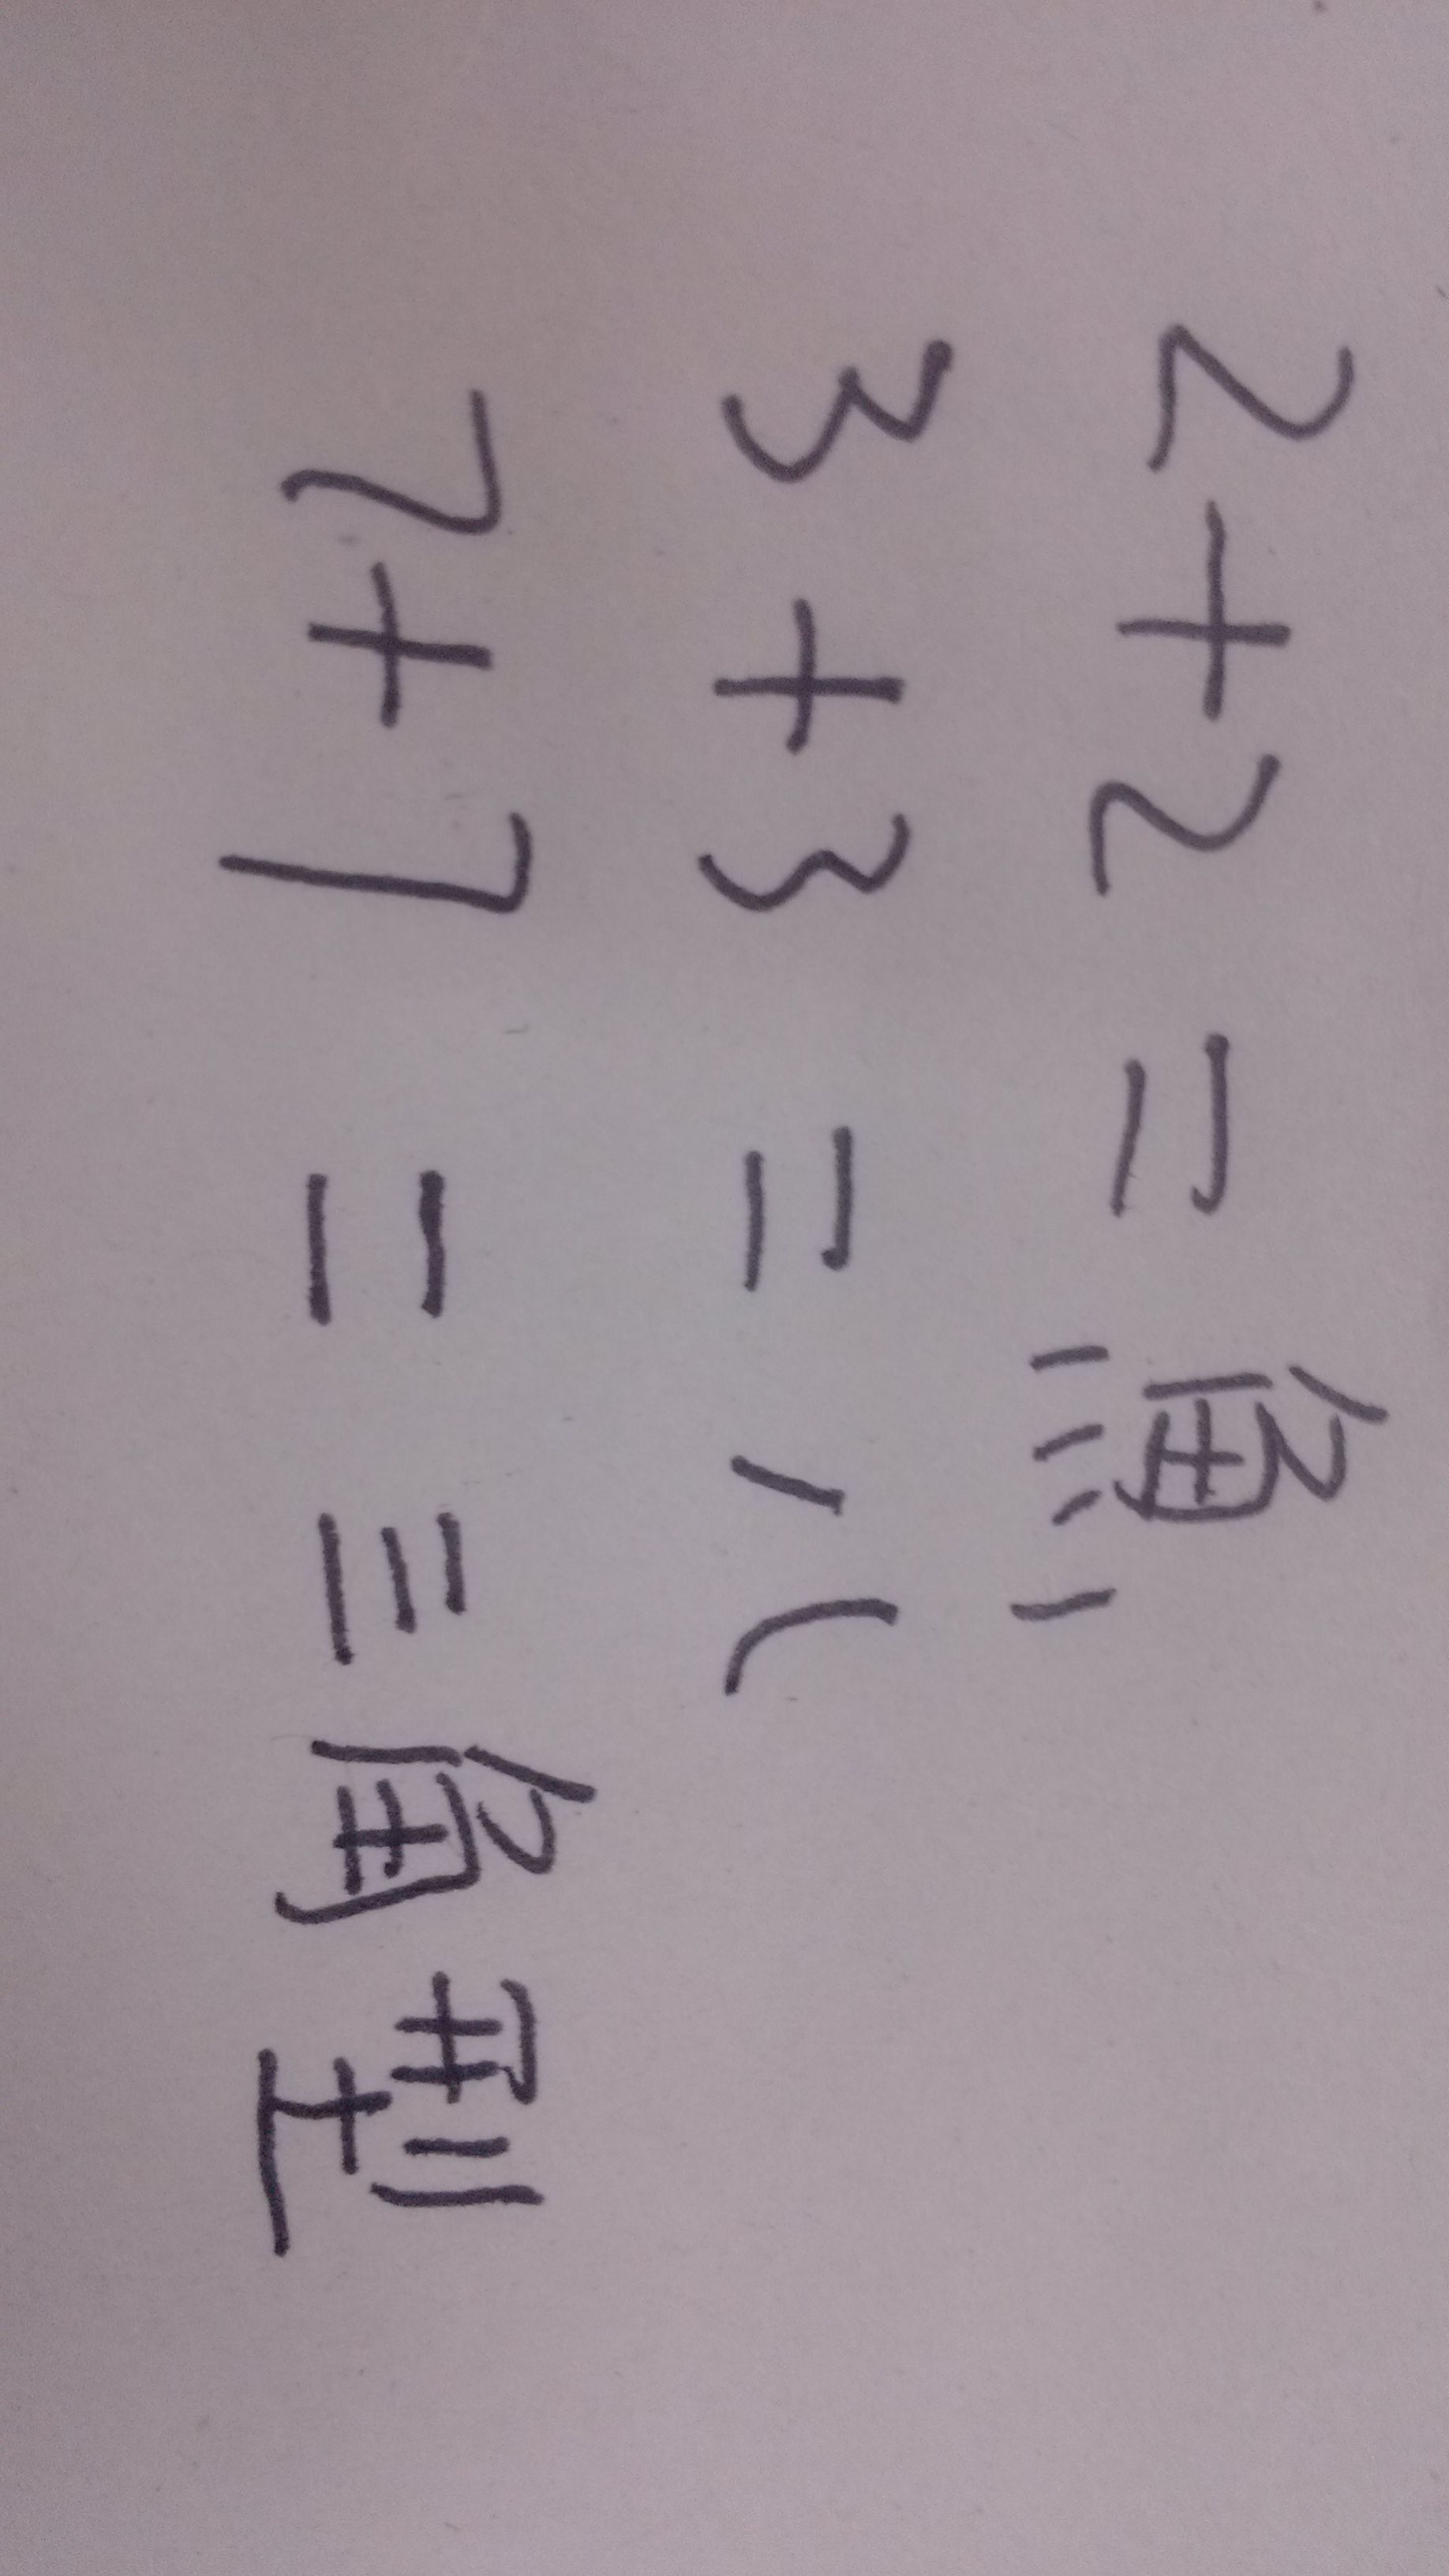 2+2=魚
3+3=八
7+7=三角型